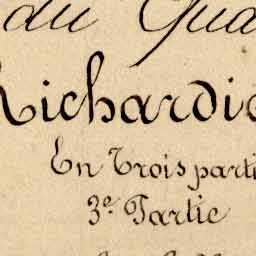 du Qua
Richardie
En Trois parti
3e. Partie